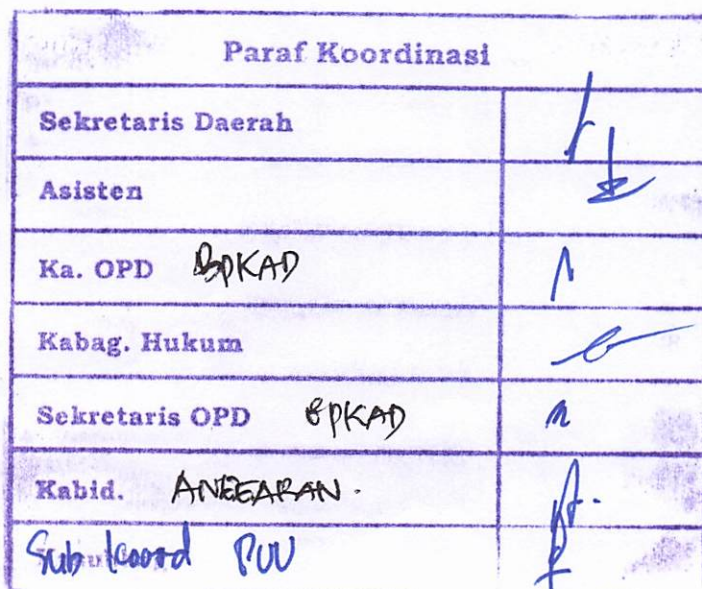 Paraf Koordinasi
Sekretaris Daerah
Asisten
Ka. OPD BPKAD
Kabag. Hukum
Sekretaris OPD BPKAD
Kabid. ANGGARAN.
Sub Koord PUU